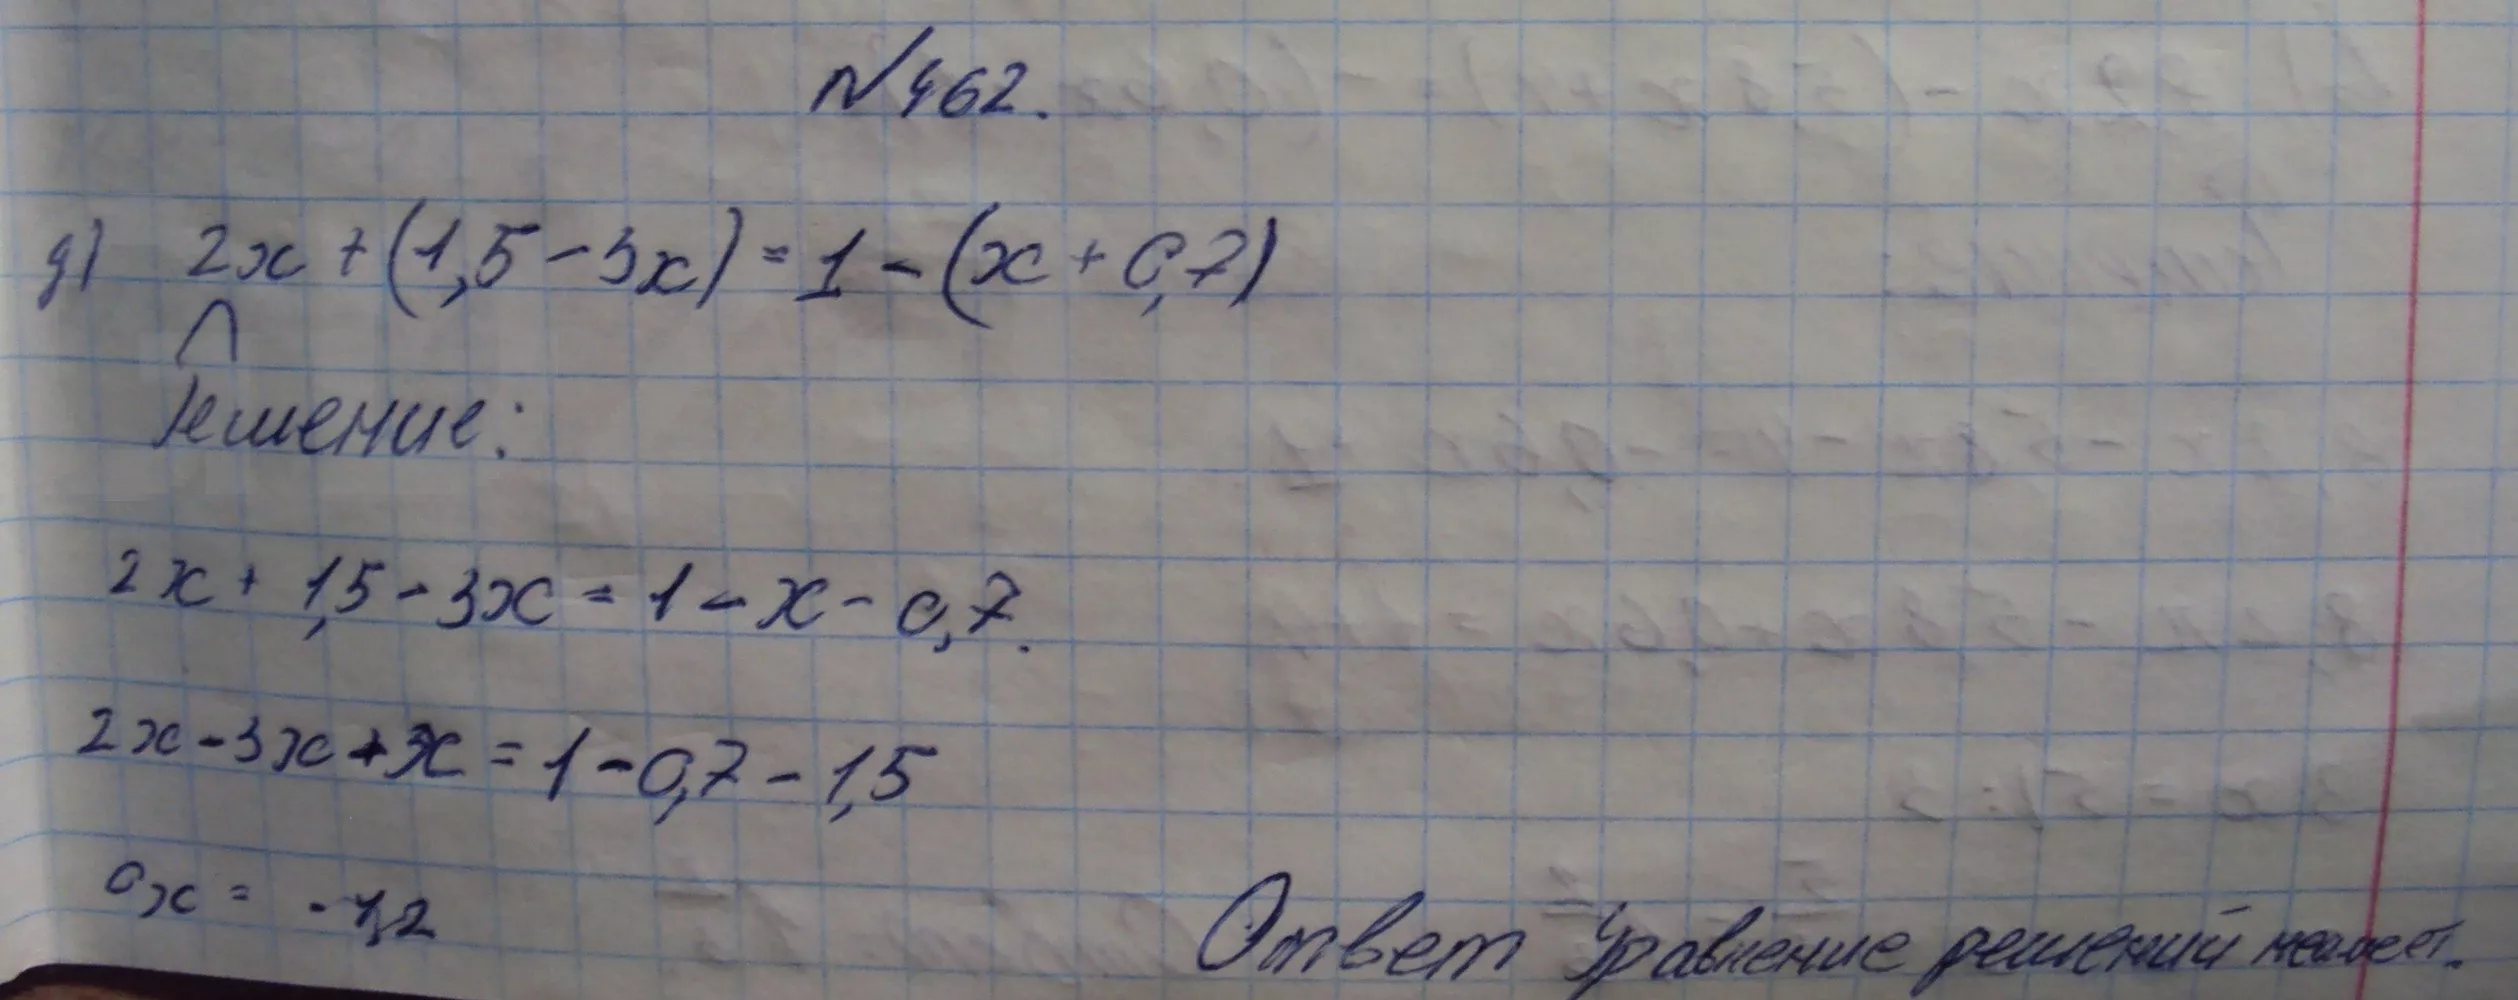 №462.
д) 2x + (1,5 - 3x) = 1 - (x + 0,7)
Решение:
2x + 1,5 - 3x = 1 - x - 0,7.
2x - 3x + x = 1 - 0,7 - 1,5
0x = -1,2
Ответ Уравнение решений не имеет.